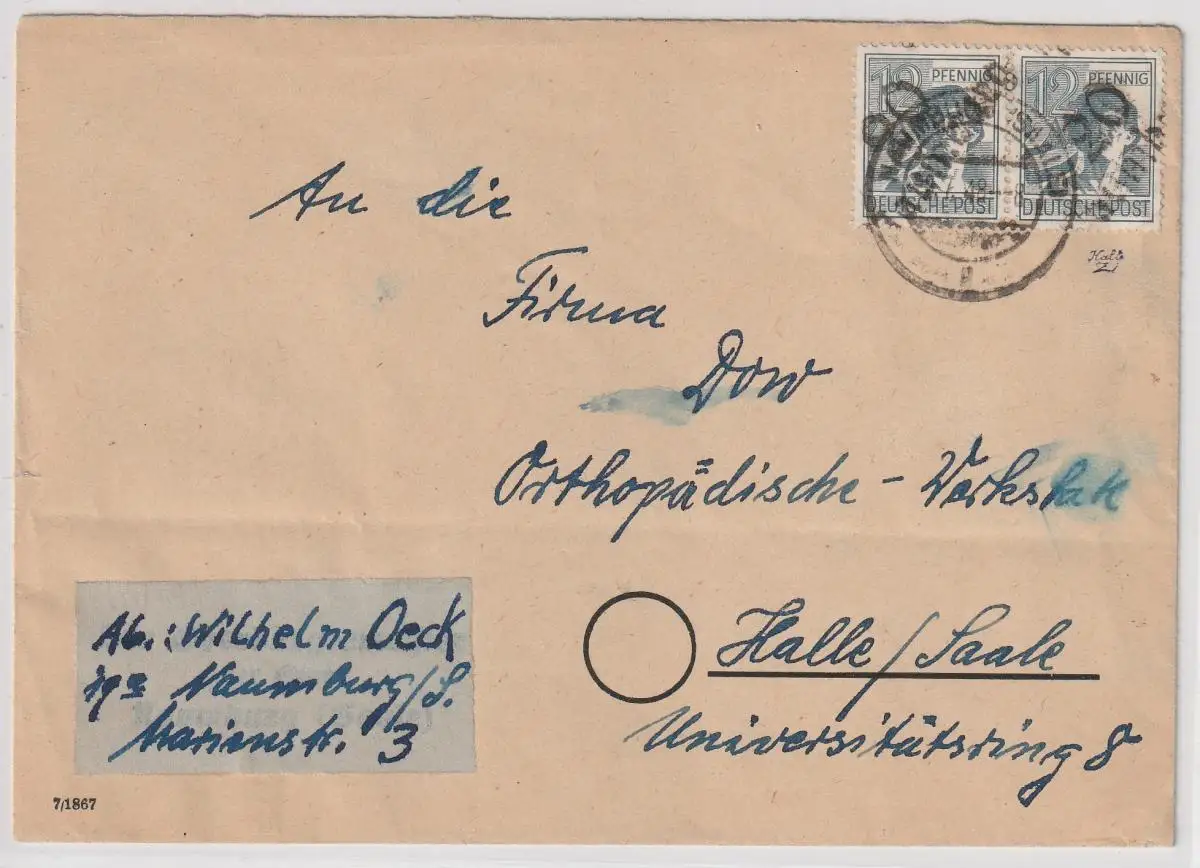 12 PFENNIG 12 PFENNIG
20 20
DEUTSCHE POST DEUTSCHE POST
An die
Firma
Dow
Orthopädische - Werkstatt
Halle/Saale
Universitätsring 8
Ab.: Wilhelm Oeck
19a Naumburg/S.
Marienstr. 3
7/1867